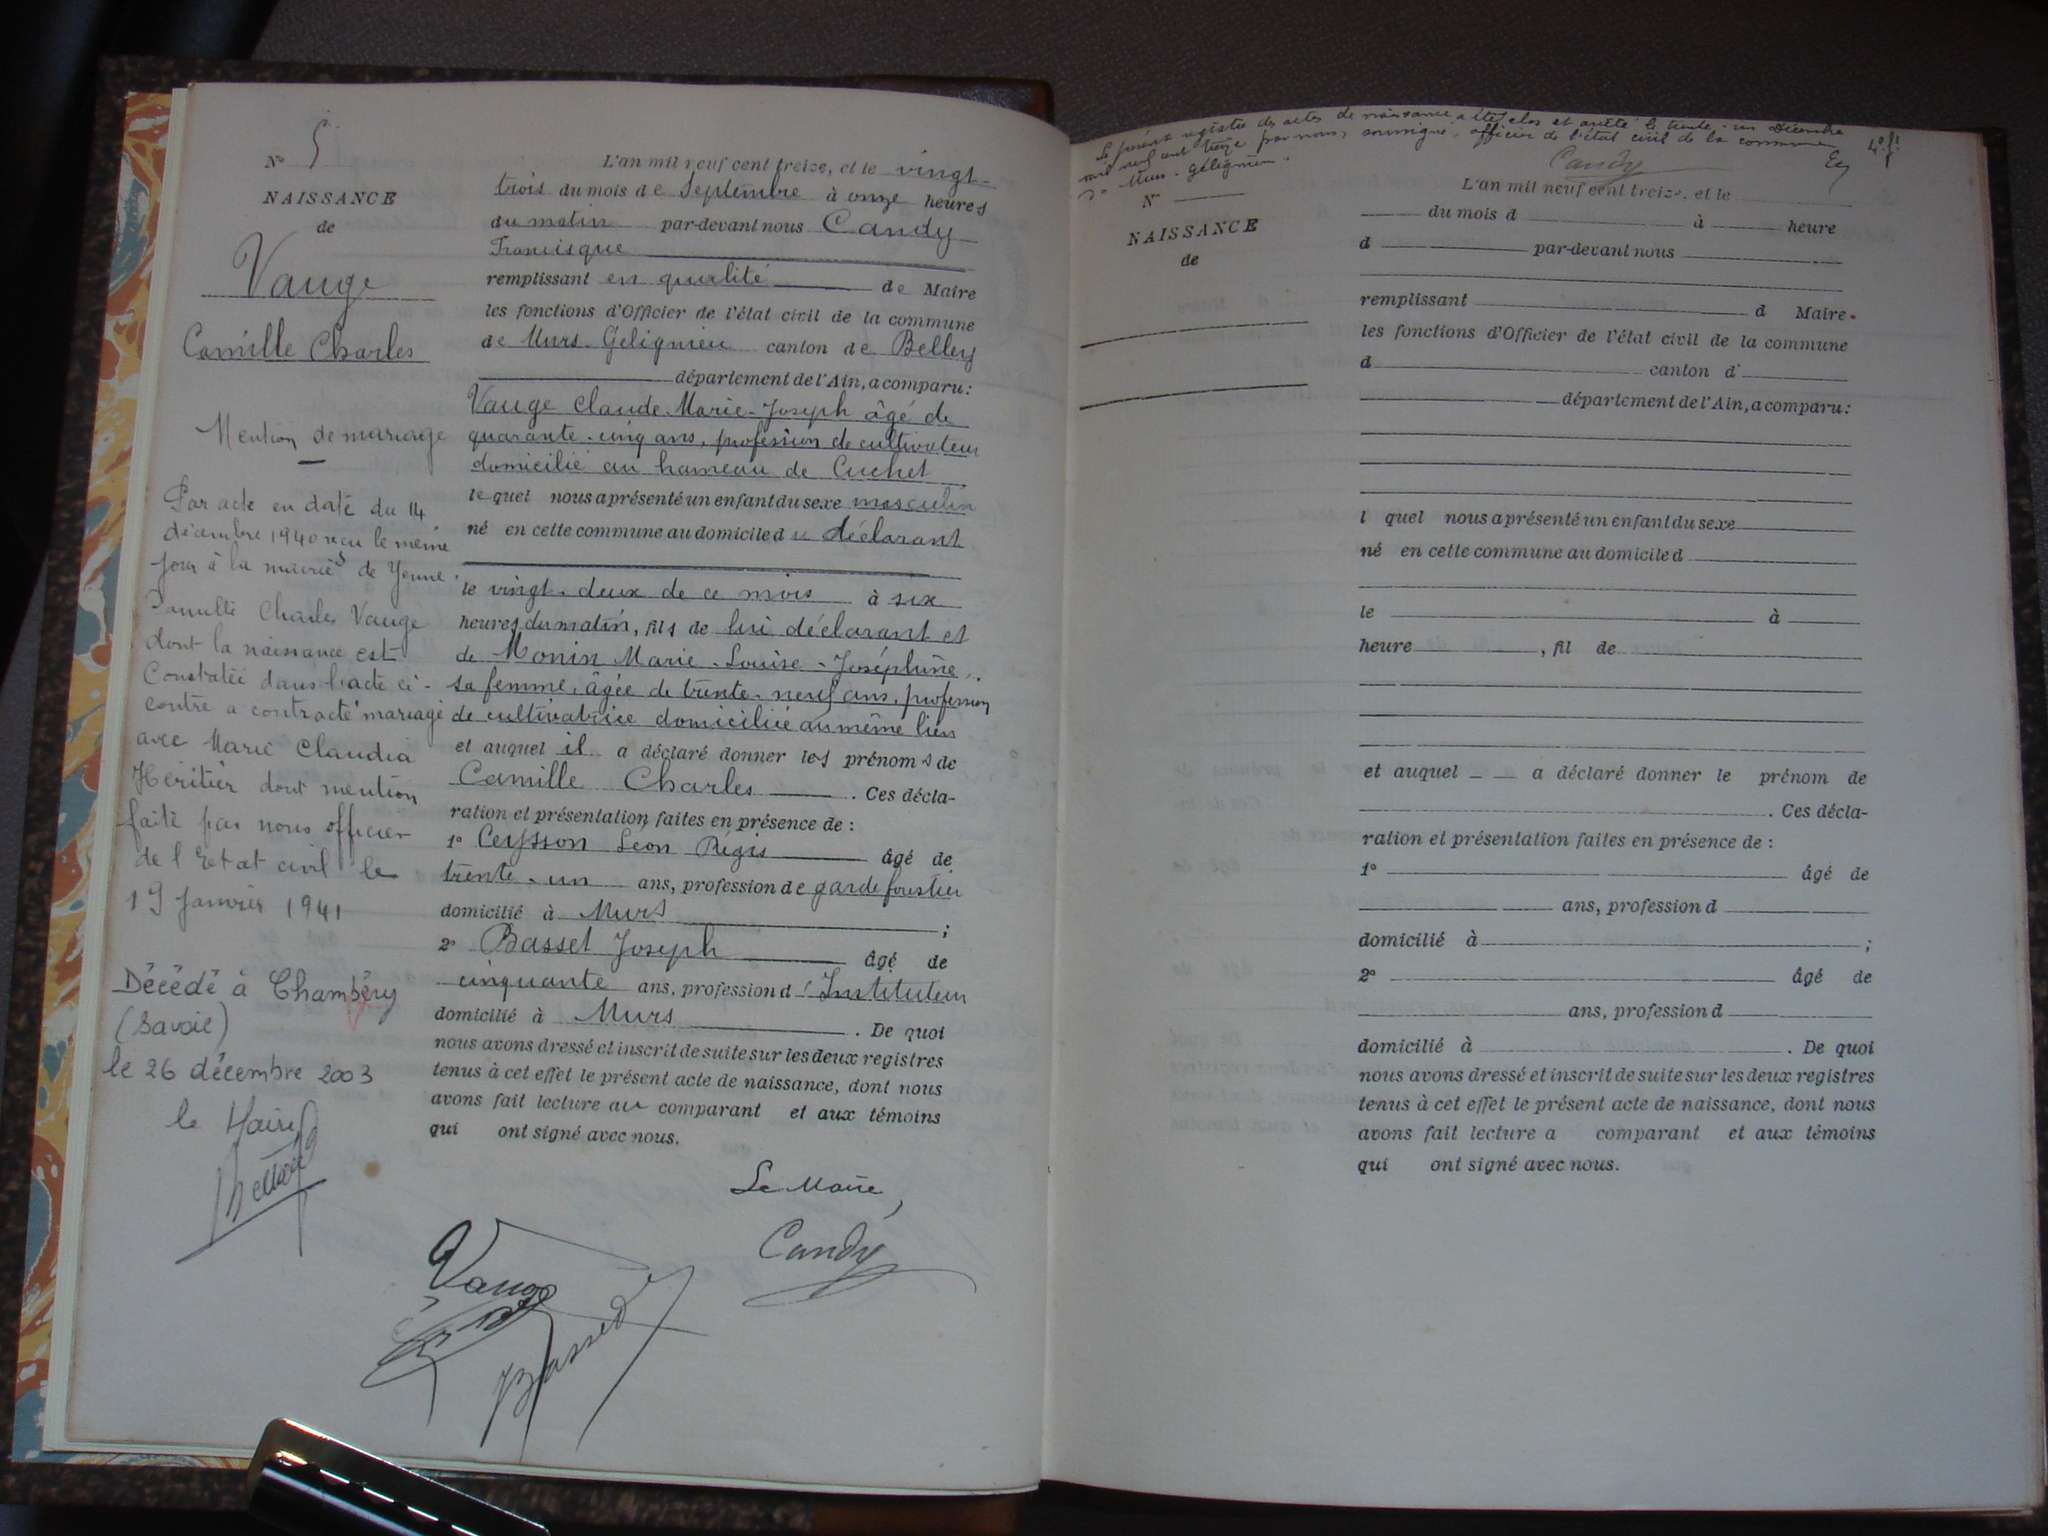 N° 5
NAISSANCE
de
Vauge
Camille Charles
Mention de mariage
Par acte en date du 14
décembre 1940 reçu le même
jour à la mairie de Yenne
Camille Charles Vauge
dont la naissance est
Constatée dans l'acte ci-
contre a contracté mariage
avec Marie Claudia
Héritier dont mention
faite par nous officier
de l'Etat civil le
19 Janvier 1941
Décédé à Chambéry
(Savoie)
le 26 décembre 2003
le Maire
L'an mil neuf cent treize, et le vingt-
trois du mois de Septembre à onze heures
du matin par-devant nous Candy
Francisque
remplissant en qualité de Maire
les fonctions d'Officier de l'état civil de la commune
de Murs-Gélignieu canton de Belley
département de l'Ain, a comparu :
Vauge Claude-Marie-Joseph âgé de
quarante-cinq ans, profession de cultivateur
domicilié au hameau de Cuchet
lequel nous a présenté un enfant du sexe masculin
né en cette commune au domicile du déclarant
le vingt-deux de ce mois à six
heures du matin, fils de lui déclarant et
de Monin Marie-Louise-Joséphine,
sa femme, âgée de trente-neuf ans, profession
de cultivatrice domiciliée au même lieu
et auquel il a déclaré donner les prénoms de
Camille Charles . Ces décla-
ration et présentation faites en présence de :
1° Ceysson Léon Régis âgé de
trente-un ans, profession de garde forestier
domicilié à Murs ;
2° Basset Joseph âgé de
cinquante ans, profession d'Instituteur
domicilié à Murs . De quoi
nous avons dressé et inscrit de suite sur les deux registres
tenus à cet effet le présent acte de naissance, dont nous
avons fait lecture au comparant et aux témoins
qui ont signé avec nous.
Le Maire,
Candy
Vauge
Basset
Le présent registre des actes de naissance a été clos et arrêté le trente-un Décembre
mil neuf cent treize par nous, soussigné, officier de l'état civil de la commune
de Murs-Gélignieu.
Candy
N°
NAISSANCE
de
L'an mil neuf cent treize, et le
du mois d à heure
d par-devant nous
remplissant d Maire.
les fonctions d'Officier de l'état civil de la commune
d canton d
département de l'Ain, a comparu :
l quel nous a présenté un enfant du sexe
né en cette commune au domicile d
le à
heure , fil de
et auquel a déclaré donner le prénom de
. Ces décla-
ration et présentation faites en présence de :
1° âgé de
ans, profession d
domicilié à ;
2° âgé de
ans, profession d
domicilié à . De quoi
nous avons dressé et inscrit de suite sur les deux registres
tenus à cet effet le présent acte de naissance, dont nous
avons fait lecture a comparant et aux témoins
qui ont signé avec nous.